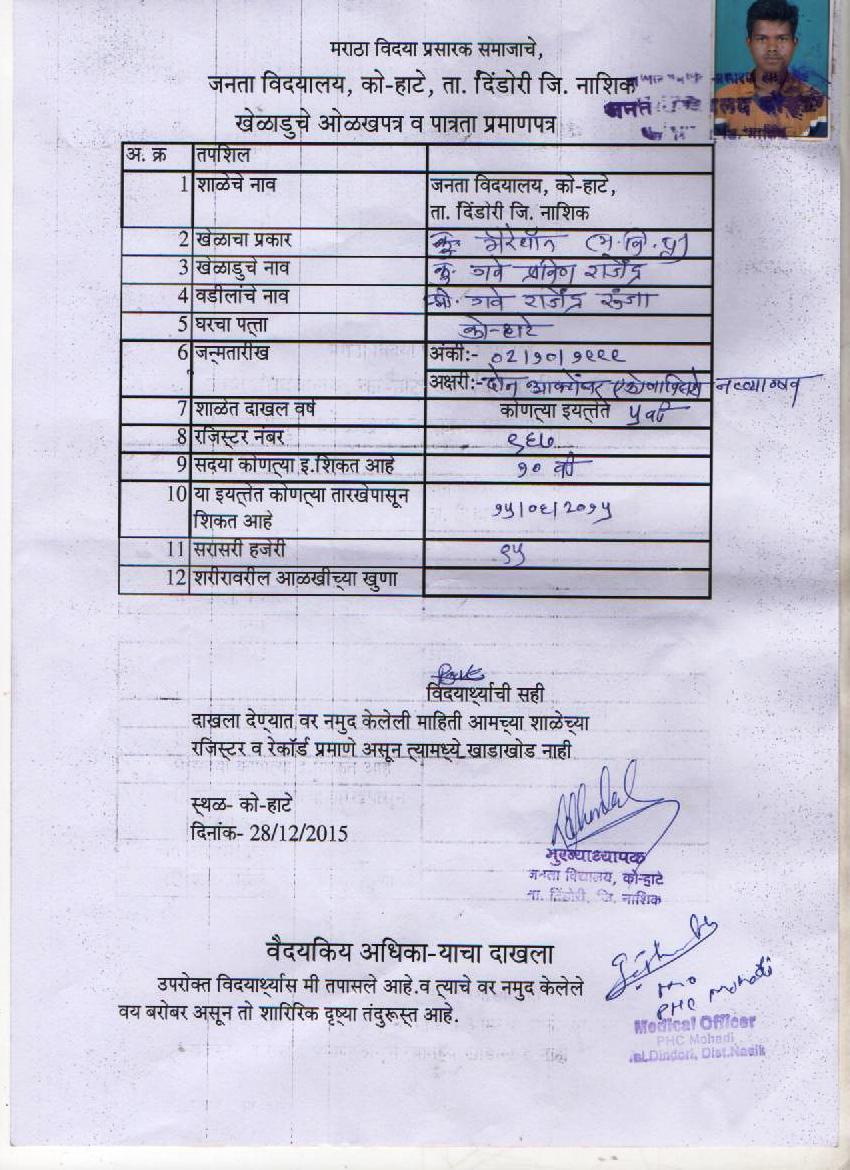 मराठा विदया प्रसारक समाजाचे,
जनता विदयालय, को-हाटे, ता. दिंडोरी जि. नाशिक
खेळाडुचे ओळखपत्र व पात्रता प्रमाणपत्र
अ. क्र तपशिल
1 शाळेचे नाव जनता विदयालय, को-हाटे,
ता. दिंडोरी जि. नाशिक
2 खेळाचा प्रकार मॅरेथॉन
3 खेळाडुचे नाव कु. गवे प्रविण राजेंद्र
4 वडीलांचे नाव श्री. गवे राजेंद्र रुंजा
5 घरचा पत्ता को-हाटे
6 जन्मतारीख अंकी:- ०२/१०/१९९९
अक्षरी:- दोन आक्टोंबर एकोणाविशे नव्व्याण्णव
7 शाळेत दाखल वर्ष कोणत्या इयत्तेते ५वी
8 रजिस्टर नंबर ९६७
9 सदया कोणत्या इ.शिकत आहे १० वी
10 या इयत्तेत कोणत्या तारखेपासून १५/०६/२०१५
शिकत आहे
11 सरासरी हजेरी ९५
12 शरीरावरील आळखीच्या खुणा
विदयार्थ्याची सही
दाखला देण्यात वर नमुद केलेली माहिती आमच्या शाळेच्या
रजिस्टर व रेकॉर्ड प्रमाणे असून त्यामध्ये खाडाखोड नाही
स्थळ- को-हाटे
दिनांक- 28/12/2015
मुख्याध्यापक
जनता विद्यालय, को-हाटे
ता. दिंडोरी, जि. नाशिक
वैदयकिय अधिका-याचा दाखला
उपरोक्त विदयार्थ्यास मी तपासले आहे.व त्याचे वर नमुद केलेले
वय बरोबर असून तो शारिरिक दृष्या तंदुरूस्त आहे.
MO
PHC Mohadi
Medical Officer
PHC Mohadi
Tal.Dindori, Dist.Nasik